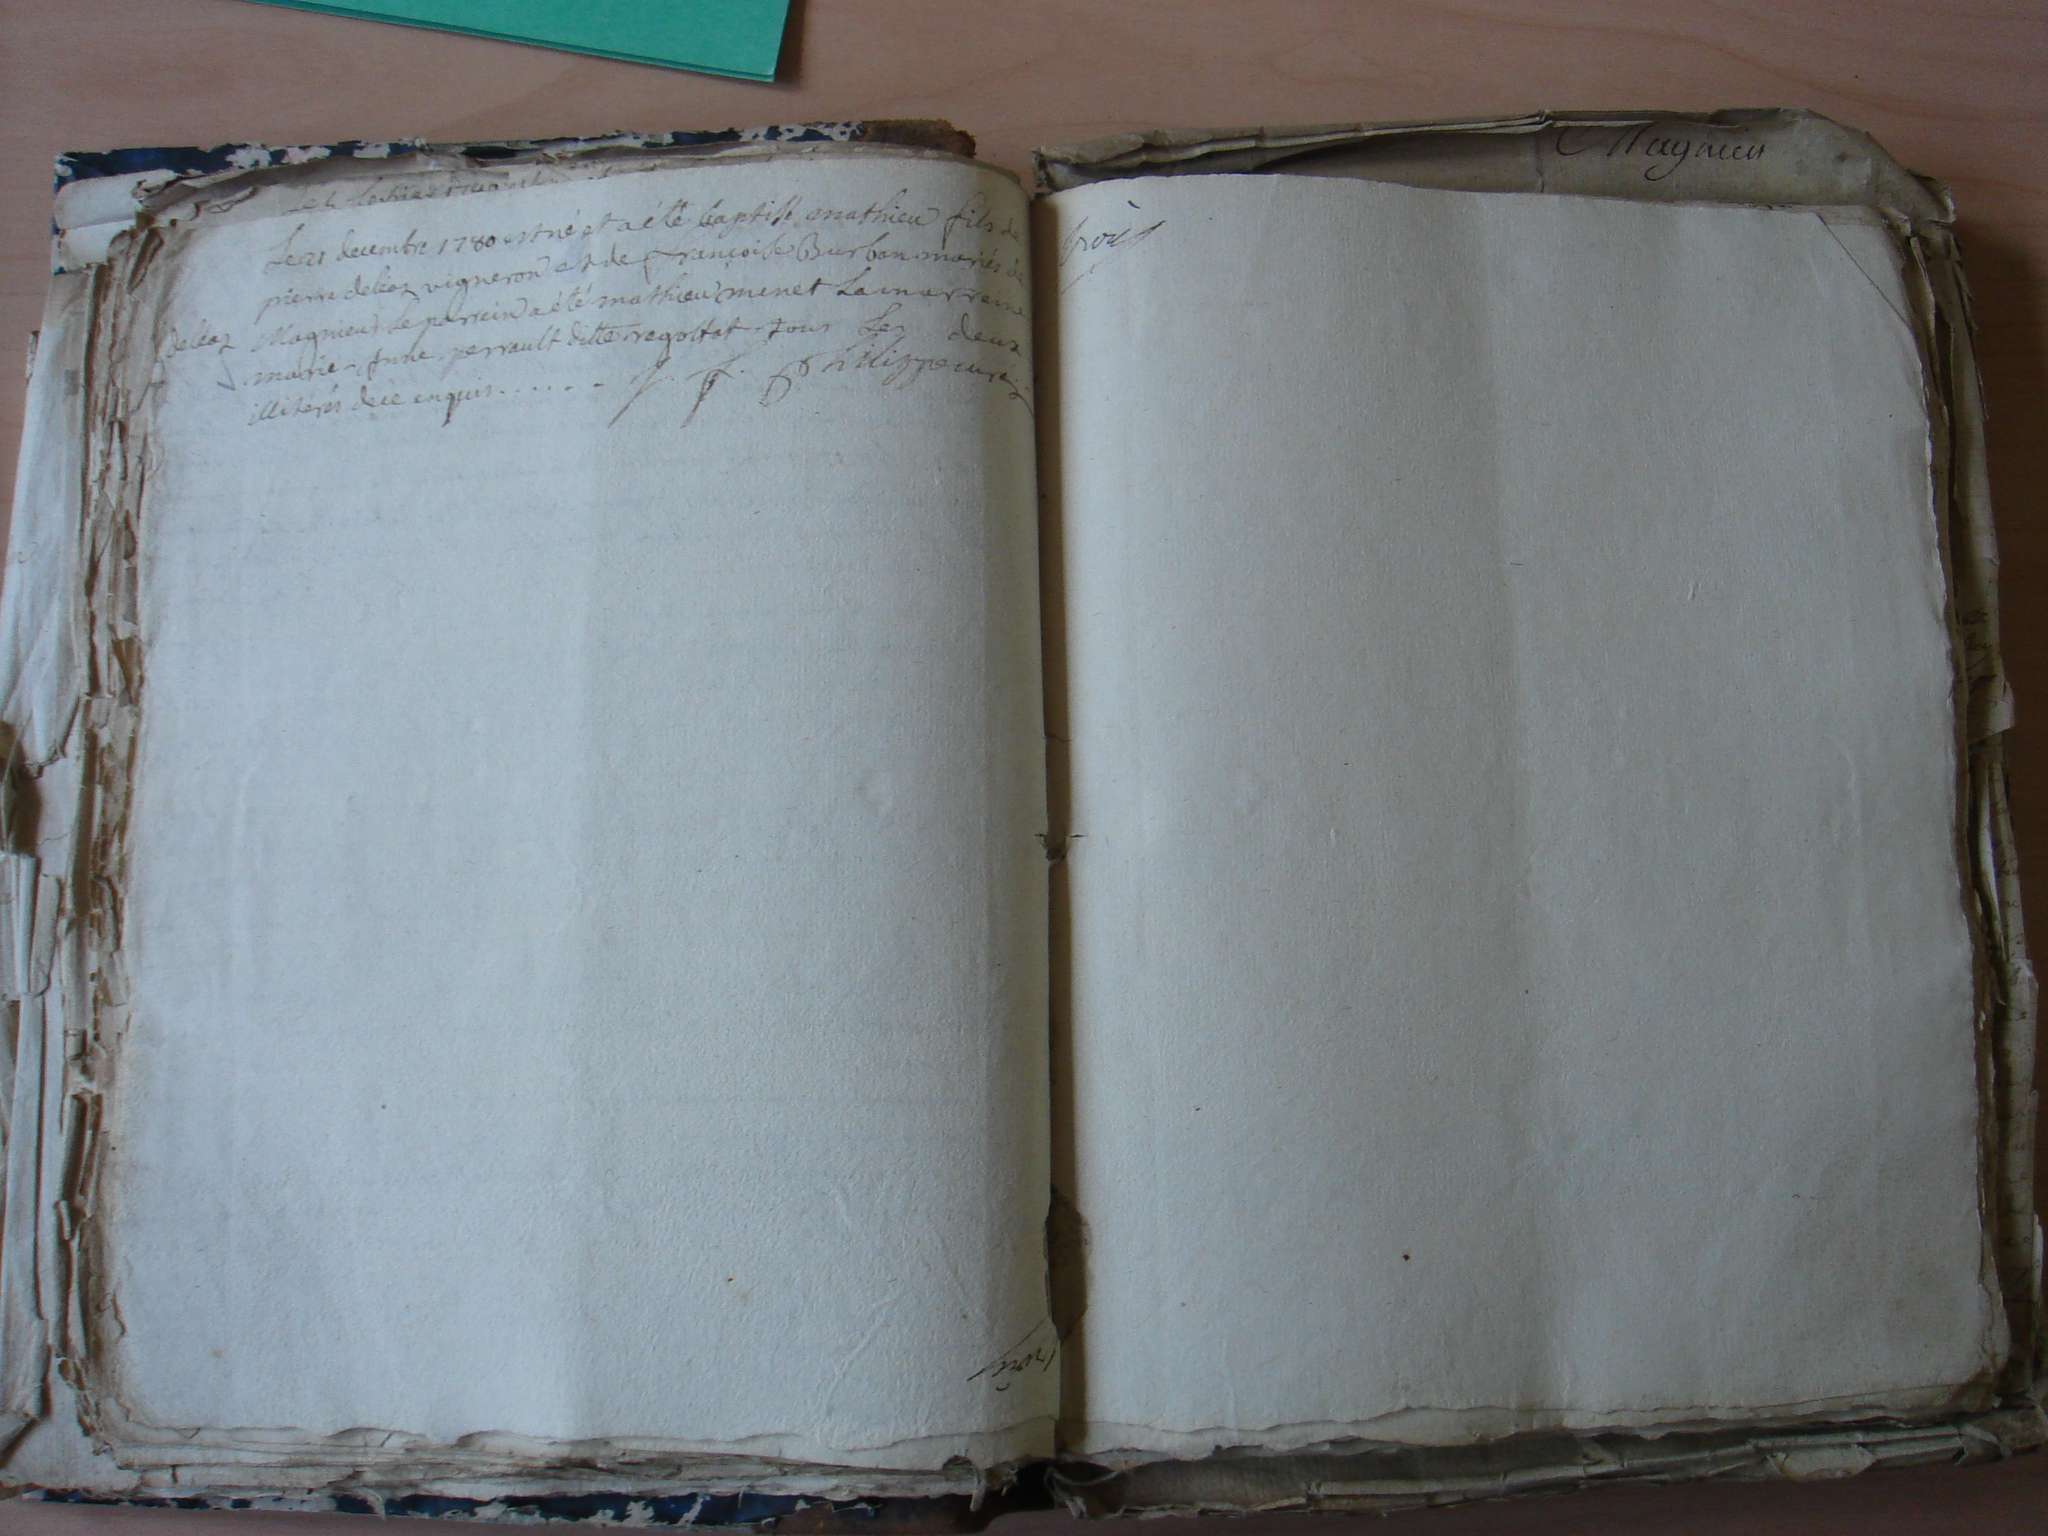 Le 21 decembre 1780 est né et a été baptisé mathieu fils de
pierre deleaz vigneron et de françoise Burban mariés de
Magnieu Le parrein a été mathieu minet La marreine
marie-Anne perrault ditte regottat tous Les deux
illiterés de ce enquis...... J. f. Philippe curé
deleaz
Magnieu